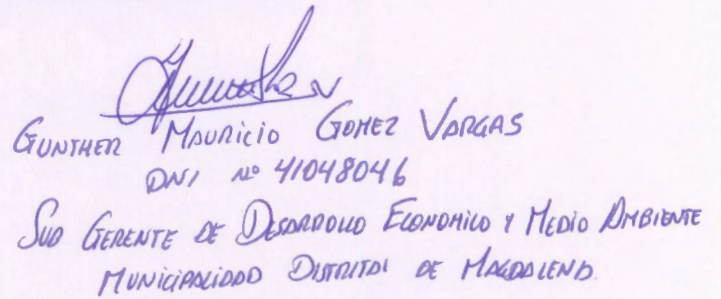 GUNTHER MAURICIO GOMEZ VARGAS
DNI Nº 41048046
SUB GERENTE DE DESARROLLO ECONOMICO Y MEDIO AMBIENTE
MUNICIPALIDAD DISTRITAL DE MAGDALENA